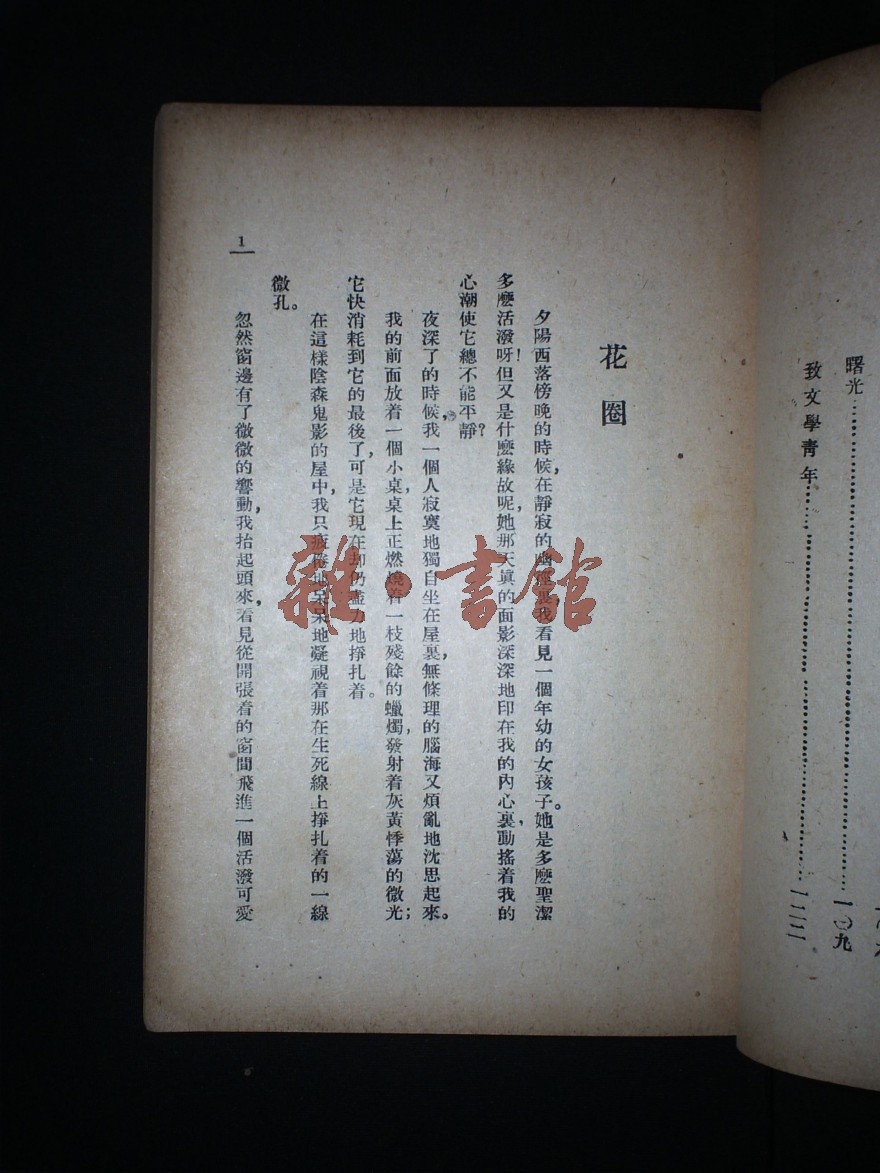 曙光……一〇九
致文學青年……一二二
花圈
夕陽西落傍晚的時候，在靜寂的幽徑裏我看見一個年幼的女孩子。她是多麽聖潔
多麽活潑呀！但又是什麽緣故呢，她那天眞的面影深深地印在我的內心裏，動搖着我的
心潮使它總不能平靜？
夜深了的時候，我一個人寂寞地獨自坐在屋裏，無條理的腦海又煩亂地沈思起來。
我的前面放着一個小桌，桌上正燃燒着一枝殘餘的蠟燭，發射着灰黃悸蕩的微光；
它快消耗到它的最後了，可是它現在却仍盡力地掙扎着。
在這樣陰森鬼影的屋中，我只疲倦地呆呆地凝視着那在生死線上掙扎着的一線
微孔。
忽然窗邊有了微微的響動，我抬起頭來，看見從開張着的窗間飛進一個活潑可愛
1
雜·書館